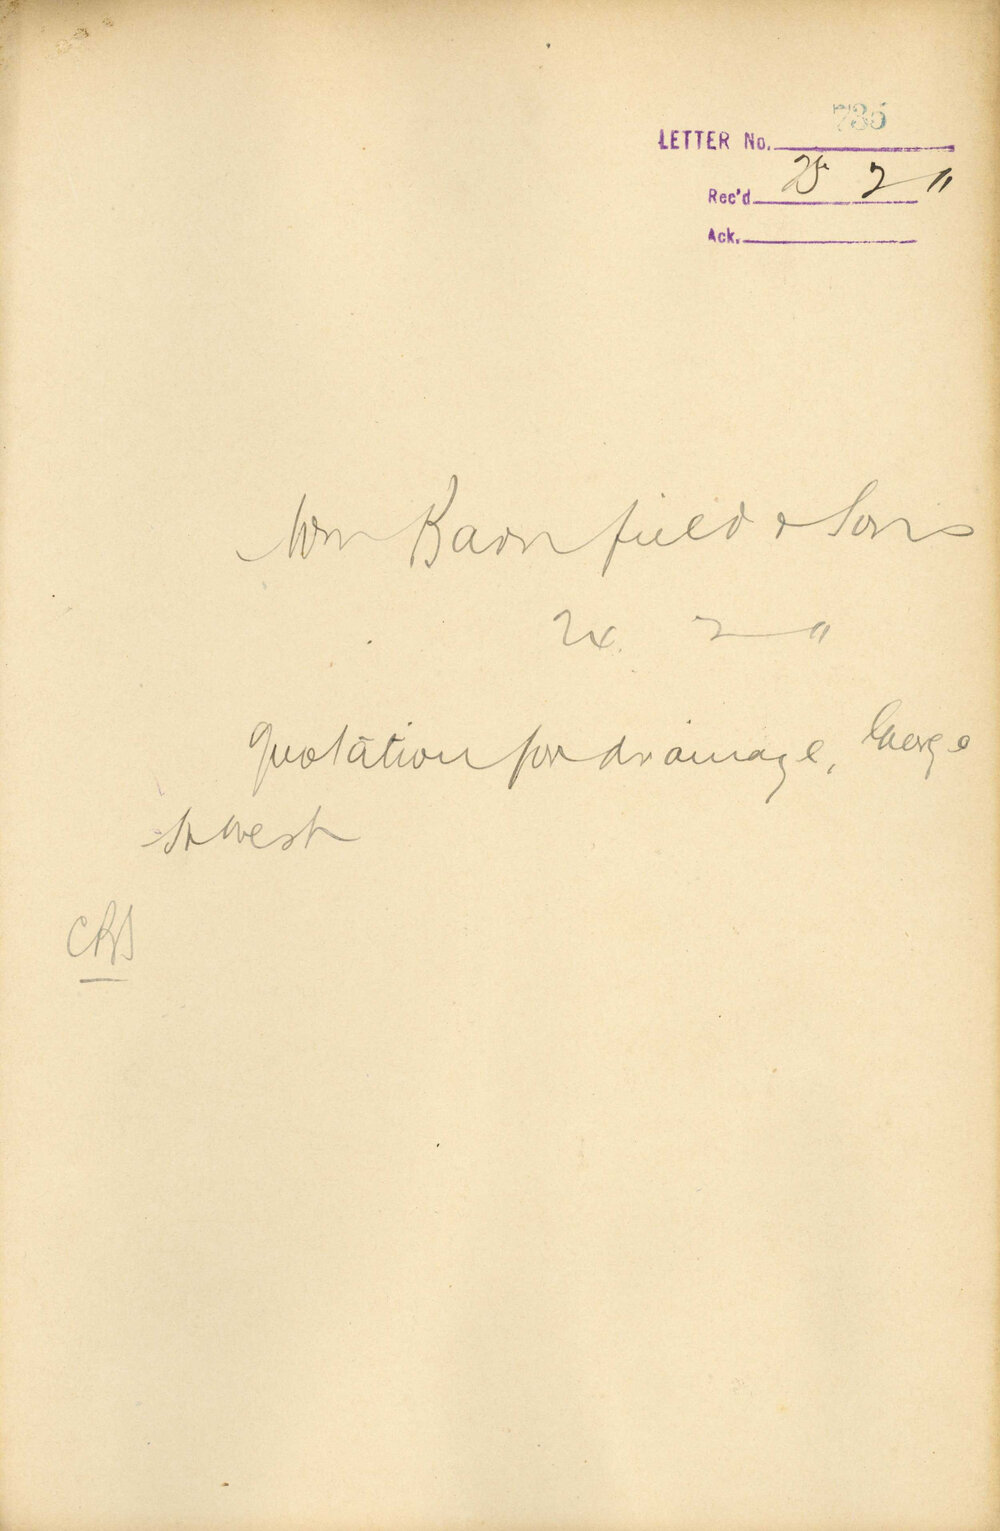 735
LETTER No.
Rec'd 25 2 11
Ack.
Wm Barnfield & Sons
24. 2 11
Quotation for drainage, George
St West